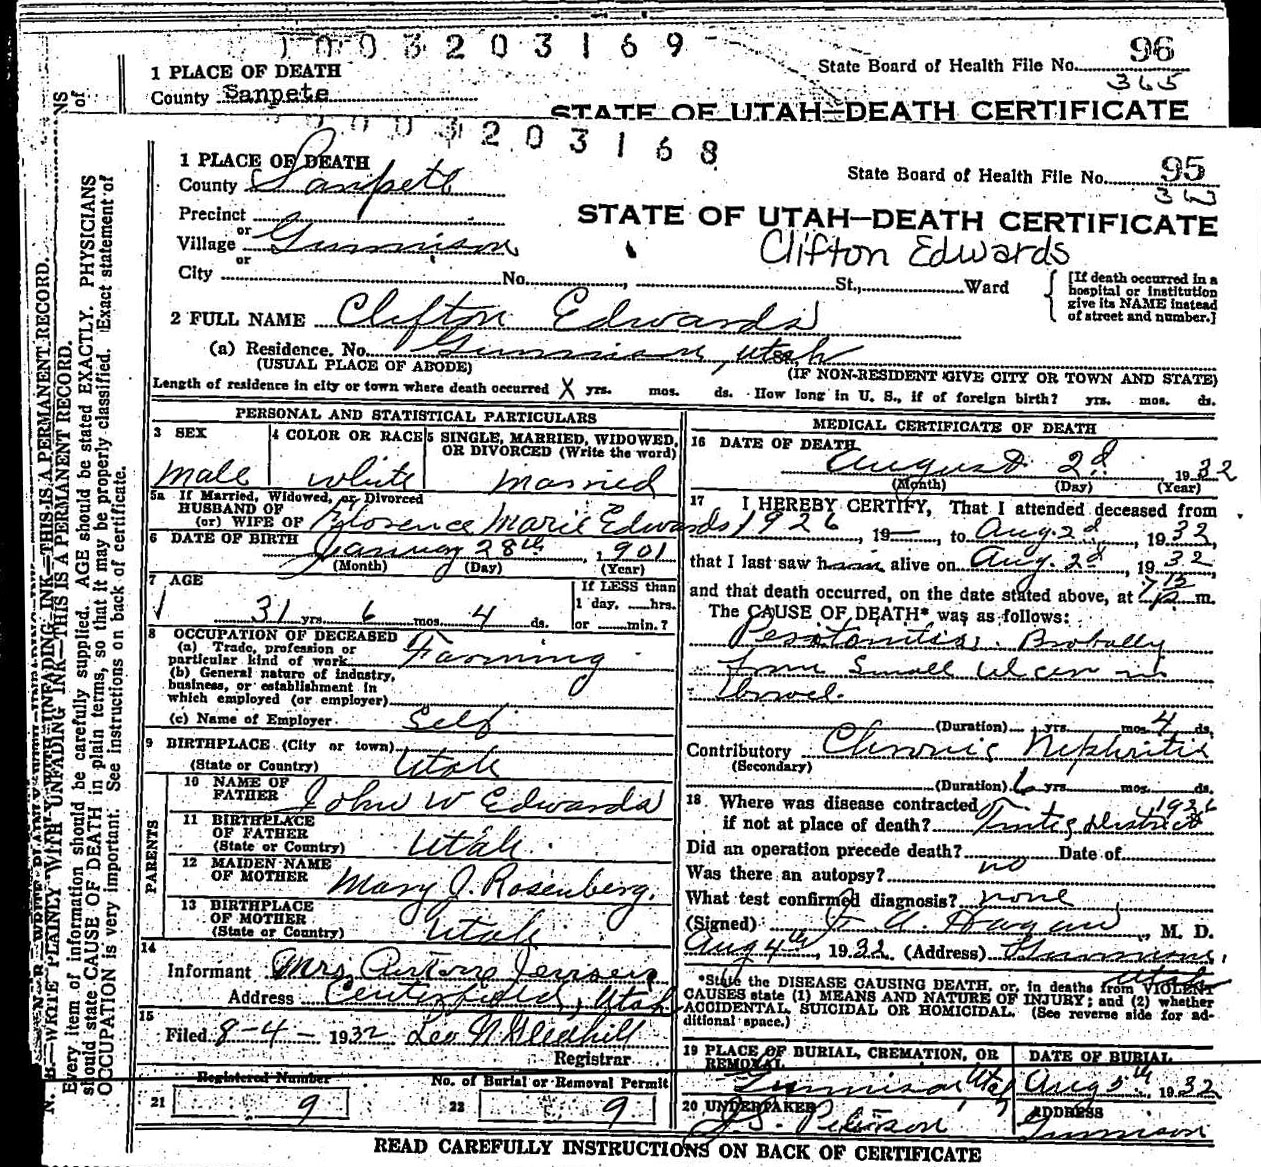 1003203169
96
State Board of Health File No.
365
1 PLACE OF DEATH
County Sanpete
STATE OF UTAH—DEATH CERTIFICATE
0003203168
95
1 PLACE OF DEATH
State Board of Health File No.
363
County Sanpete
STATE OF UTAH—DEATH CERTIFICATE
Precinct
or
Village Gunnison
Clifton Edwards
or
City No. St., Ward
[If death occurred in a
hospital or institution
give its NAME instead
of street and number.]
2 FULL NAME Clifton Edwards
(a) Residence. No. Gunnison, Utah
(USUAL PLACE OF ABODE) (IF NON-RESIDENT GIVE CITY OR TOWN AND STATE)
Length of residence in city or town where death occurred X yrs. mos. ds. How long in U. S., if of foreign birth? yrs. mos. ds.
PERSONAL AND STATISTICAL PARTICULARS
3 SEX
Male
4 COLOR OR RACE
White
5 SINGLE, MARRIED, WIDOWED,
OR DIVORCED (Write the word)
Married
5a If Married, Widowed, or Divorced
HUSBAND OF
(or) WIFE OF Florence Marie Edwards
6 DATE OF BIRTH January 28th, 1901
(Month) (Day) (Year)
7 AGE
31 yrs. 6 mos. 4 ds.
If LESS than
1 day, hrs.
or min.?
8 OCCUPATION OF DECEASED
(a) Trade, profession or
particular kind of work Farming
(b) General nature of industry,
business, or establishment in
which employed (or employer)
(c) Name of Employer Self
9 BIRTHPLACE (City or town)
(State or Country) Utah
PARENTS
10 NAME OF
FATHER John W Edwards
11 BIRTHPLACE
OF FATHER
(State or Country) Utah
12 MAIDEN NAME
OF MOTHER Mary J. Rosenberg.
13 BIRTHPLACE
OF MOTHER
(State or Country) Utah
14
Informant Mrs Jensen
Address Centerfield, Utah
15
Filed 8-4- 1932 Leo N Gledhill
Registrar
Registered Number
21 9
No. of Burial or Removal Permit
22 9
MEDICAL CERTIFICATE OF DEATH
16 DATE OF DEATH
August 2d 1932
(Month) (Day) (Year)
17 I HEREBY CERTIFY, That I attended deceased from
1926, 19—, to Aug. 2d, 1932,
that I last saw him alive on Aug. 2d, 1932
and that death occurred, on the date stated above, at m.
The CAUSE OF DEATH* was as follows:
Peritonitis. Probally
from Small Ulcer in
Bowel.
(Duration) yrs. mos. 4 ds.
Contributory Chronic Nephritis
(Secondary)
(Duration) 6 yrs. mos. ds.
18 Where was disease contracted 1926
if not at place of death? Tintic District
Did an operation precede death? Date of
Was there an autopsy? no
What test confirmed diagnosis? none
(Signed) A. Hagan, M. D.
Aug 4th, 1932. (Address) Gunnison,
Utah
*State the DISEASE CAUSING DEATH, or, in deaths from VIOLENT
CAUSES state (1) MEANS AND NATURE OF INJURY; and (2) whether
ACCIDENTAL, SUICIDAL OR HOMICIDAL. (See reverse side for ad-
ditional space.)
19 PLACE OF BURIAL, CREMATION, OR
REMOVAL
Gunnison Utah
DATE OF BURIAL
Aug 5th, 1932
20 UNDERTAKER
Peterson
ADDRESS
Gunnison
READ CAREFULLY INSTRUCTIONS ON BACK OF CERTIFICATE
N. B.—WRITE PLAINLY WITH UNFADING INK—THIS IS A PERMANENT RECORD.
Every item of information should be carefully supplied. AGE should be stated EXACTLY. PHYSICIANS
should state CAUSE OF DEATH in plain terms, so that it may be properly classified. Exact statement of
OCCUPATION is very important. See instructions on back of certificate.